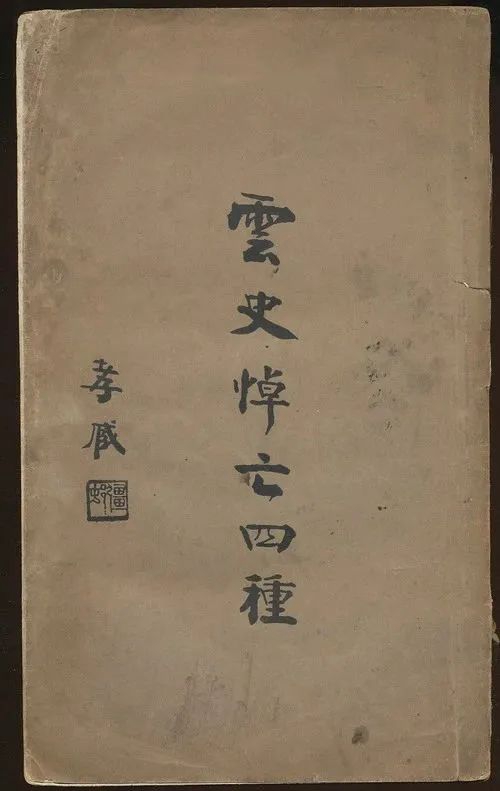 雲史悼亡四種
孝臧
彊邨